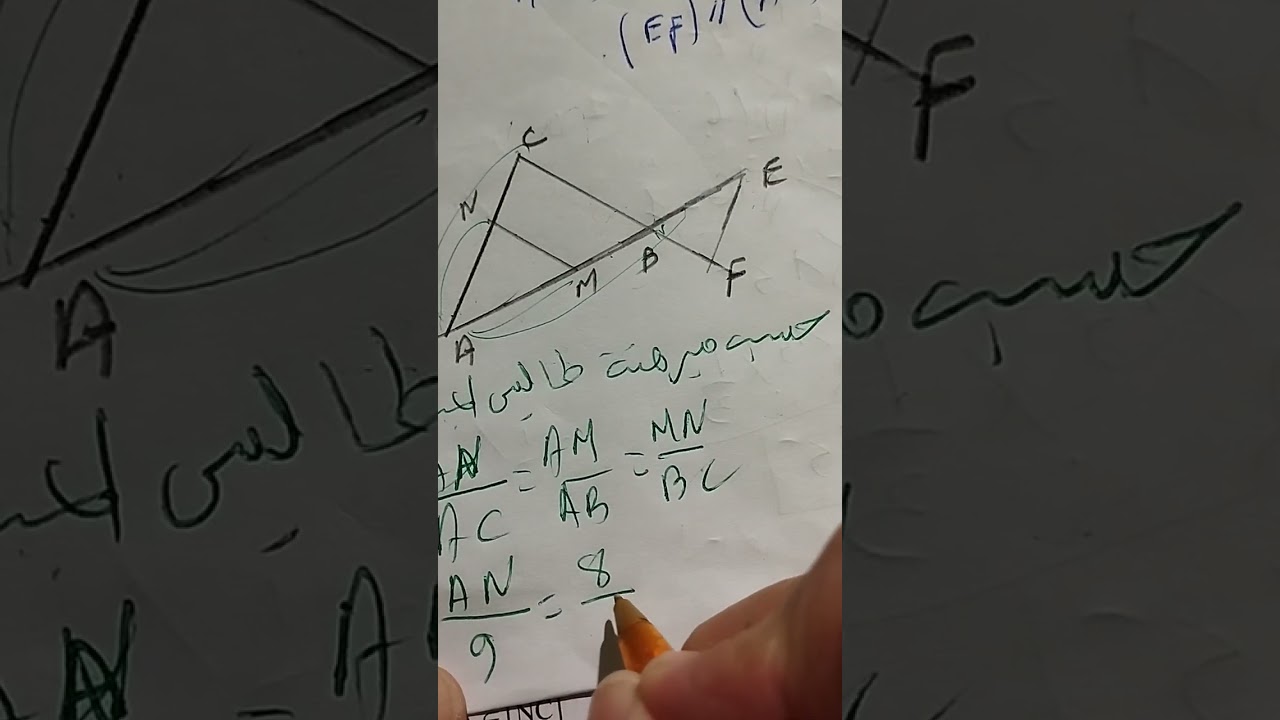 (EF) // (
C
E
N
B
M
F
A
حسب مبرهنة طاليس
AN/AC = AM/AB = MN/BC
AN/9 = 8/